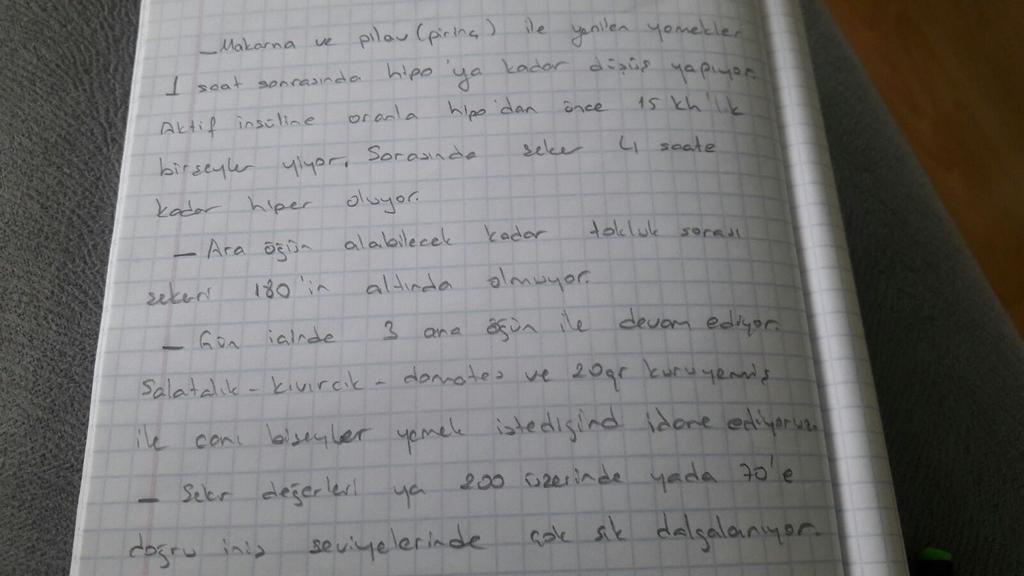 - Makarna ve pilav (pirinç) ile yenilen yemekler
1 saat sonrasında hipo'ya kadar düşüş yapıyor.
Aktif insüline oranla hipo'dan önce 15 kh'lık
birşeyler yiyor. Sorasında seker 4 saate
kadar hiper oluyor.
- Ara öğün alabilecek kadar tokluk sorası
sekeri 180'in altında olmuyor.
- Gün icinde 3 ana öğün ile devam ediyor.
Salatalık - kıvırcık - domates ve 20gr kuruyemis
ile canı biseyler yemek istediğind idare ediyoruz
- Sekr değerleri ya 200 üzerinde yada 70'e
doğru iniş seviyelerinde çok sık dalgalanıyor.